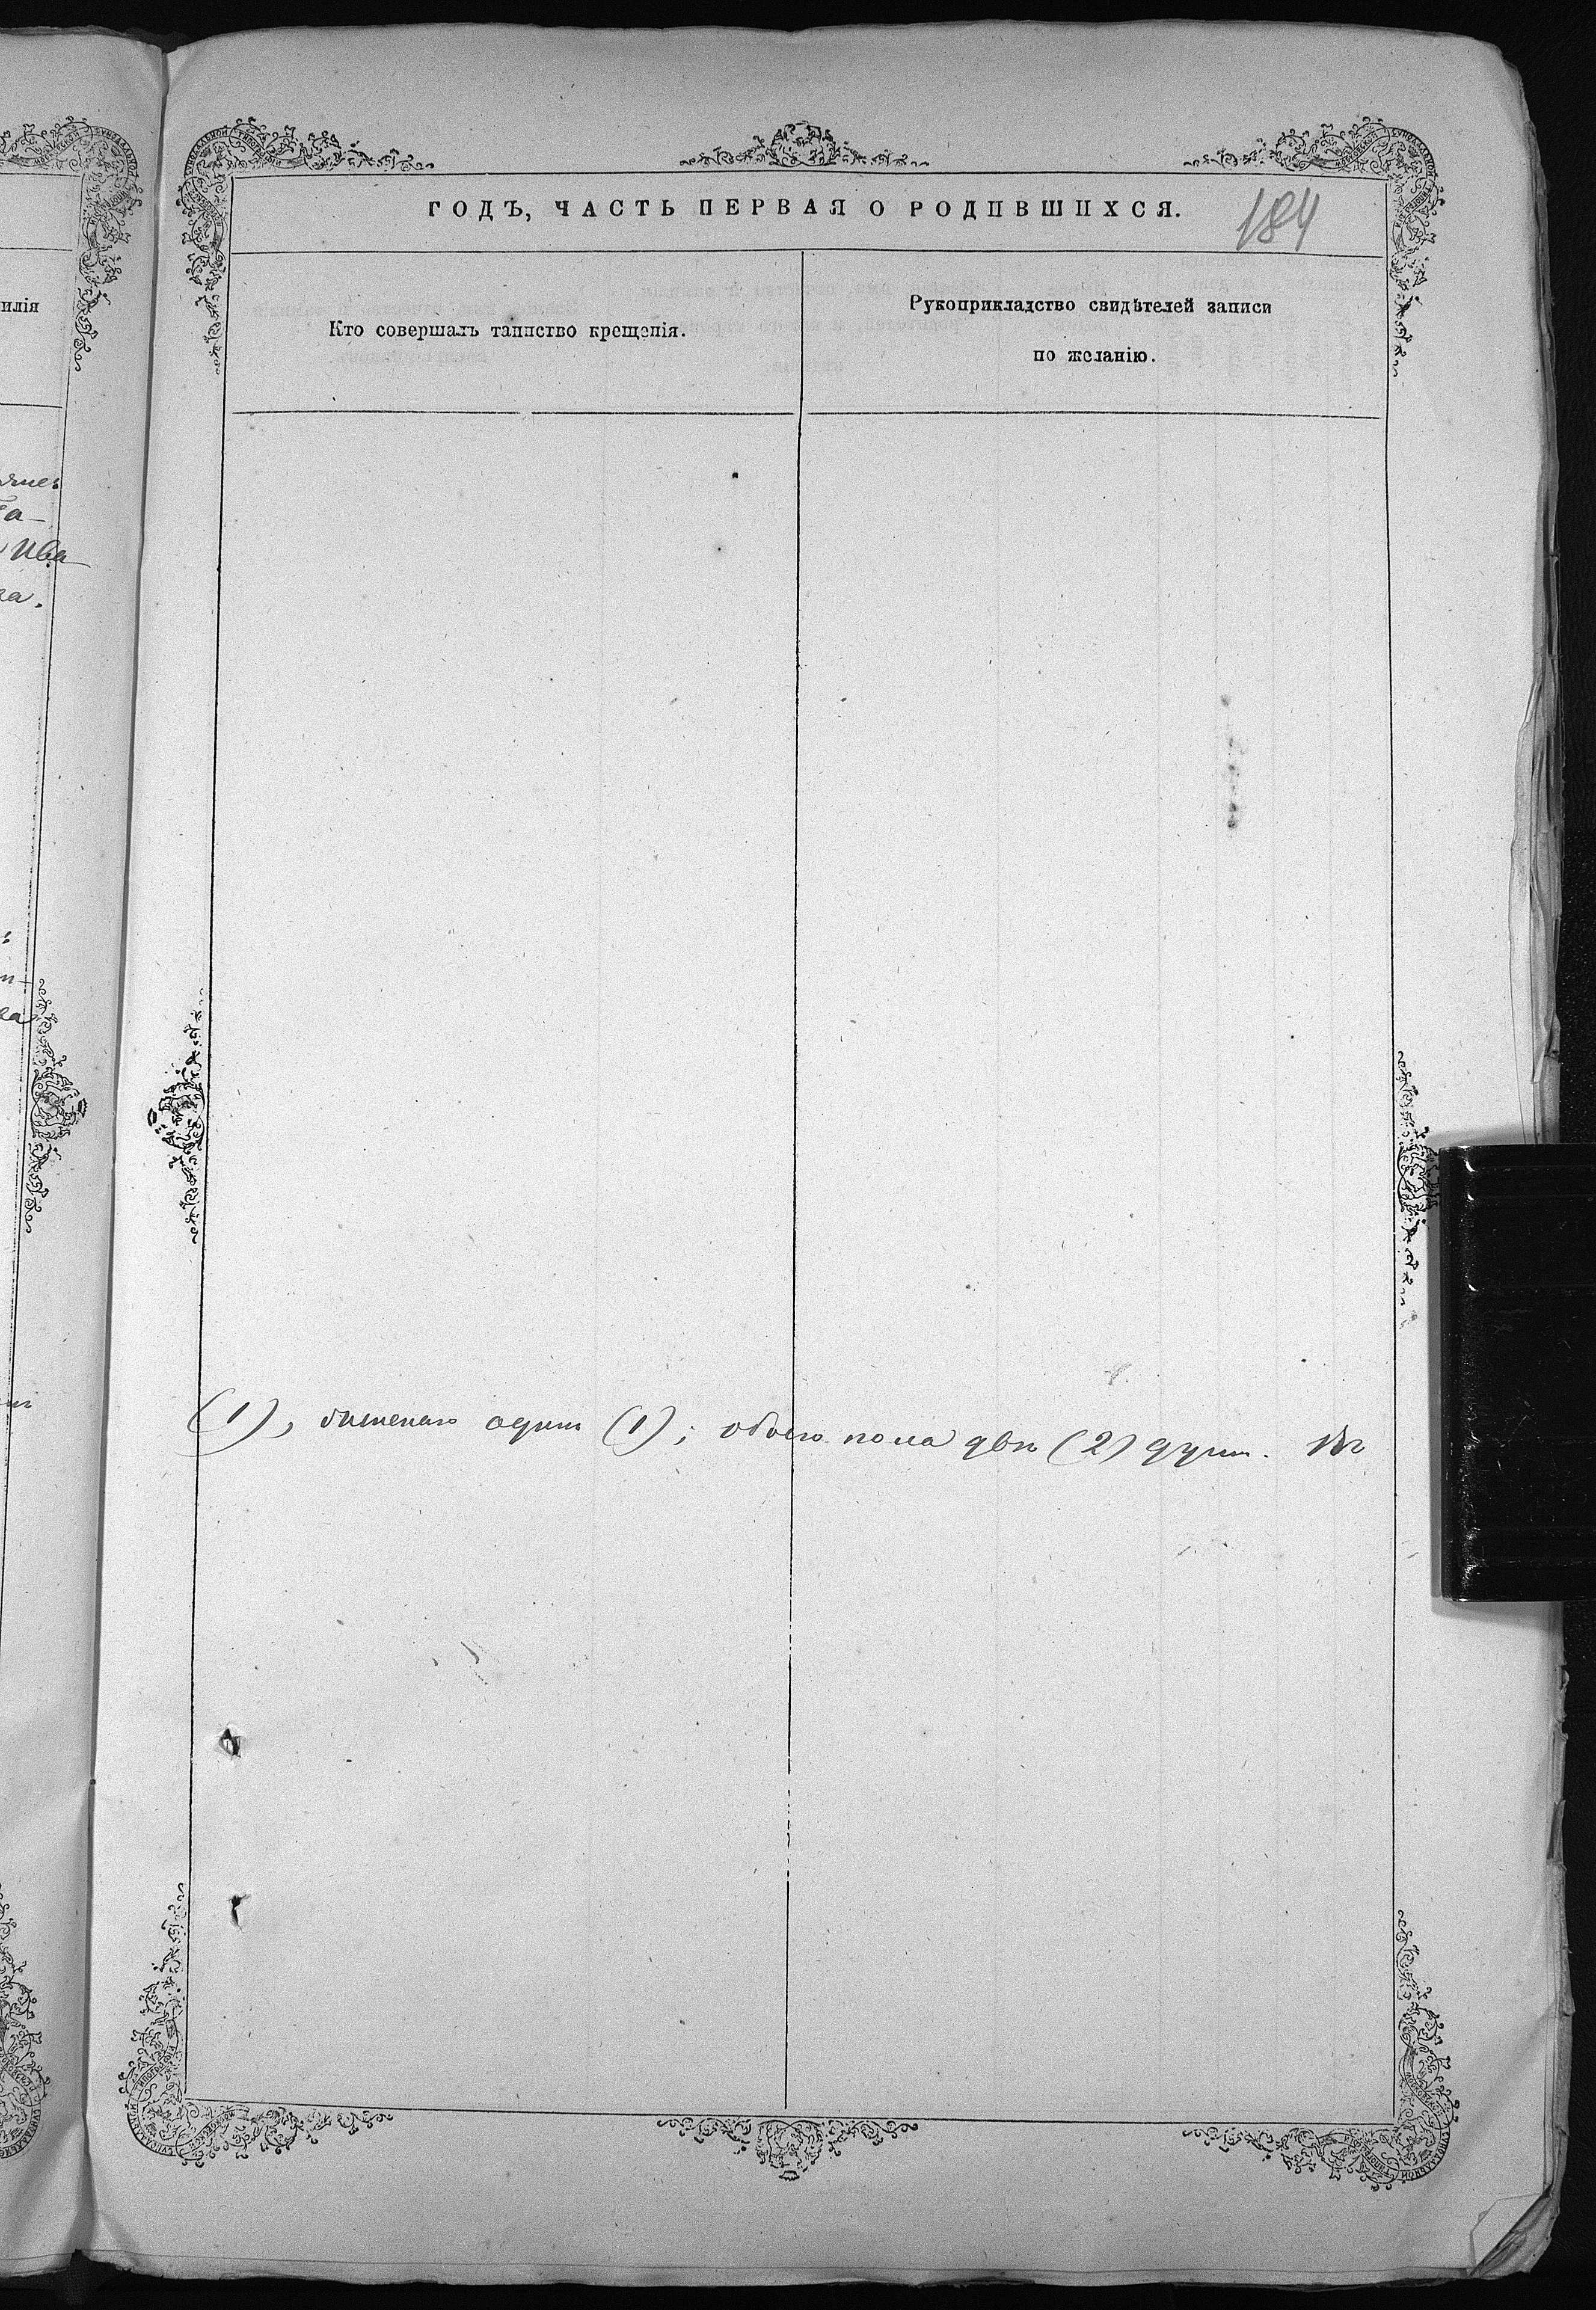 ГОДЪ, ЧАСТЬ ПЕРВАЯ О РОДИВШИХСЯ.
184
илія
Кто совершалъ таинство крещенія.
Рукоприкладство свидѣтелей записи
по желанію.
та
Ива
ва.
(1), женска одна (1); обоего пола двѣ (2) души.